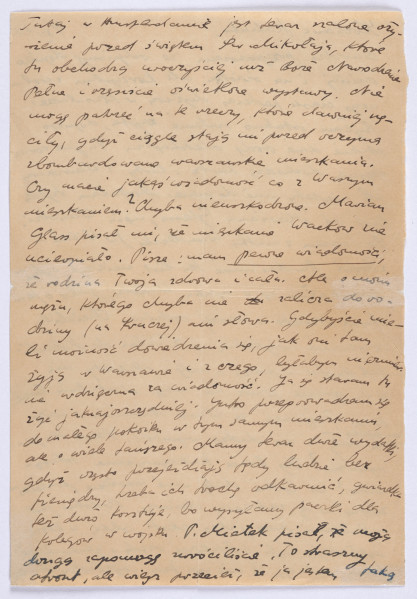 Tutaj w Amsterdamie jest teraz szalone oży-
wienie przed świętem Św. Mikołaja, które
tu obchodzą uroczyściej niż Boże Narodzenie
Pełne i rzęsiście oświetlone wystawy. Nie
mogę patrzeć na te rzeczy, które dawniej nę-
ciły, gdyż ciągle stają mi przed oczyma
zbombardowane warszawskie mieszkania.
Czy macie jakąś wiadomość co z Waszym
mieszkaniem? Chyba nieuszkodzone. Marian
Glass pisał mi, że mieszkanie Wacków nie
ucierpiało. Pisze: mam pewne wiadomości,
że rodzina Twoja zdrowa i cała. Ale o moim
mężu, którego chyba nie zalicza do ro-
dziny (na Kruczej) ani słowa. Gdybyście mie-
li możność dowiedzenia się, jak oni tam
żyją w Warszawie i z czego, byłabym
wdzięczna za wiadomość. Ja się staram tu
żyć jaknajoszczędniej. Jutro przeprowadzam się
do małego pokoiku w tym samym mieszkaniu,
ale o wiele tańszego. Mamy teraz duże wydatki,
gdyż często przejeżdżają tędy ludzie bez
pieniędzy, trzeba ich trochę odkarmić,
też dużo kosztuje, bo wysyłamy paczki dla
kolegów w wojsku. P. Mietek pisał, że moją
drugą zapomogę zwróciliście, To straszny
afront, ale więc przecież, że ja jestem taką